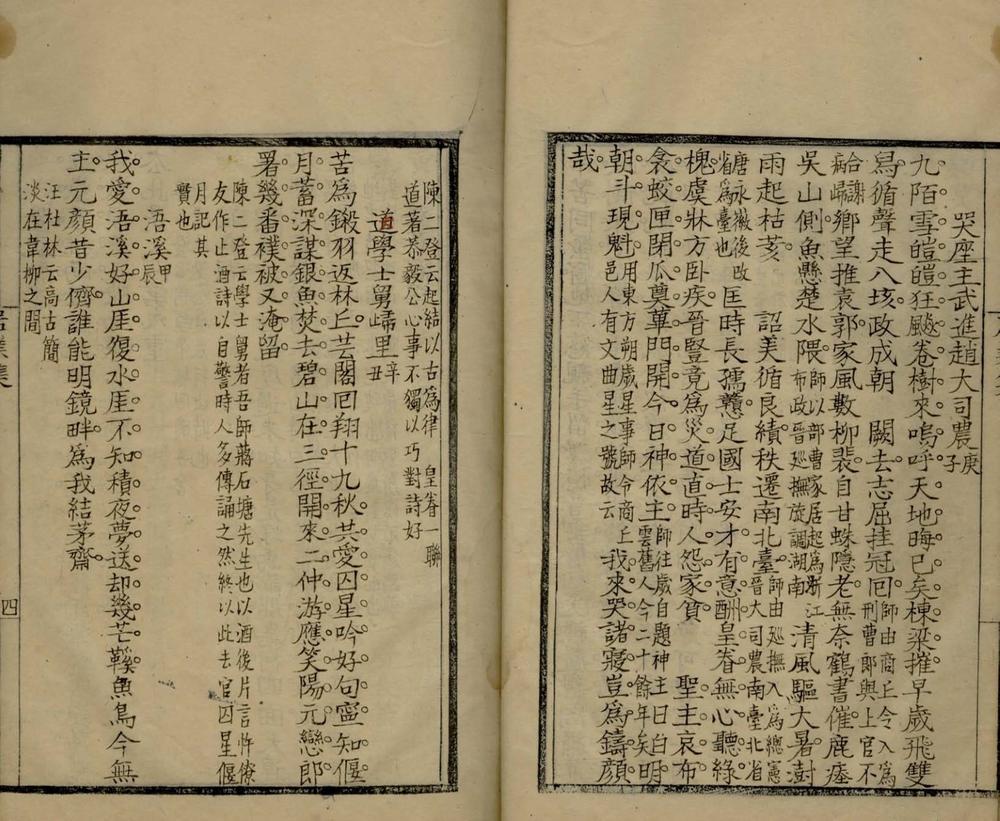 哭座主武進趙大司農庚子
九陌雪皚皚狂颷卷樹來嗚呼天地晦已矣棟梁摧早歲飛雙
舃循聲走八垓政成朝　闕去志屈挂冠囘師由商丘令入為刑曹郎與上官不
合謝病歸鄉望推袁郭家風數柳裴自甘蛛隱老無奈鶴書催鹿塞
吳山側魚懸楚水隈師以部曹家居起為浙江布政晉廵撫旋調湖南清風驅大暑澍
雨起枯荄　詔美循良績秩遷南北臺師由廵撫入為總憲晉大司農南臺北省
唐永徽後改省為臺也匡時長孺戇足國士安才有意酬皇眷無心聽綠
槐虞牀方卧疾晉豎竟為災道直時人怨家貧　聖主哀布
衾蛟匣閉瓜奠蓽門開今日神依主師往歲自題神主曰白雲舊人今二十餘年矣明
朝斗現魁用東方朔歲星事師令商丘邑人有文曲星之號故云我來哭諸寢豈為鑄顔
哉
陳二登云起結以古為律　皇眷一聯
道著恭毅公心事不獨以巧對詩好
道學士舅歸里辛丑
苦為鎩羽返林丘芸閣囘翔十九秋共愛囚星吟好句寧知偃
月蓄深謀銀魚焚去碧山在三徑開來二仲游應笑陽元戀郎
署幾番襆被又淹留
陳二登云學士舅者吾師蔣石塘先生也以酒後片言忤僚
友作止酒詩以自警時人多傳誦之然終以此去官囚星偃
月記其
實也
浯溪甲辰
我愛浯溪好山厓復水厓不知積夜夢送却幾芒鞵魚鳥今無
主元顏昔少儕誰能明鏡畔為我結茅齋
汪杜林云高古簡
淡在韋柳之間
四